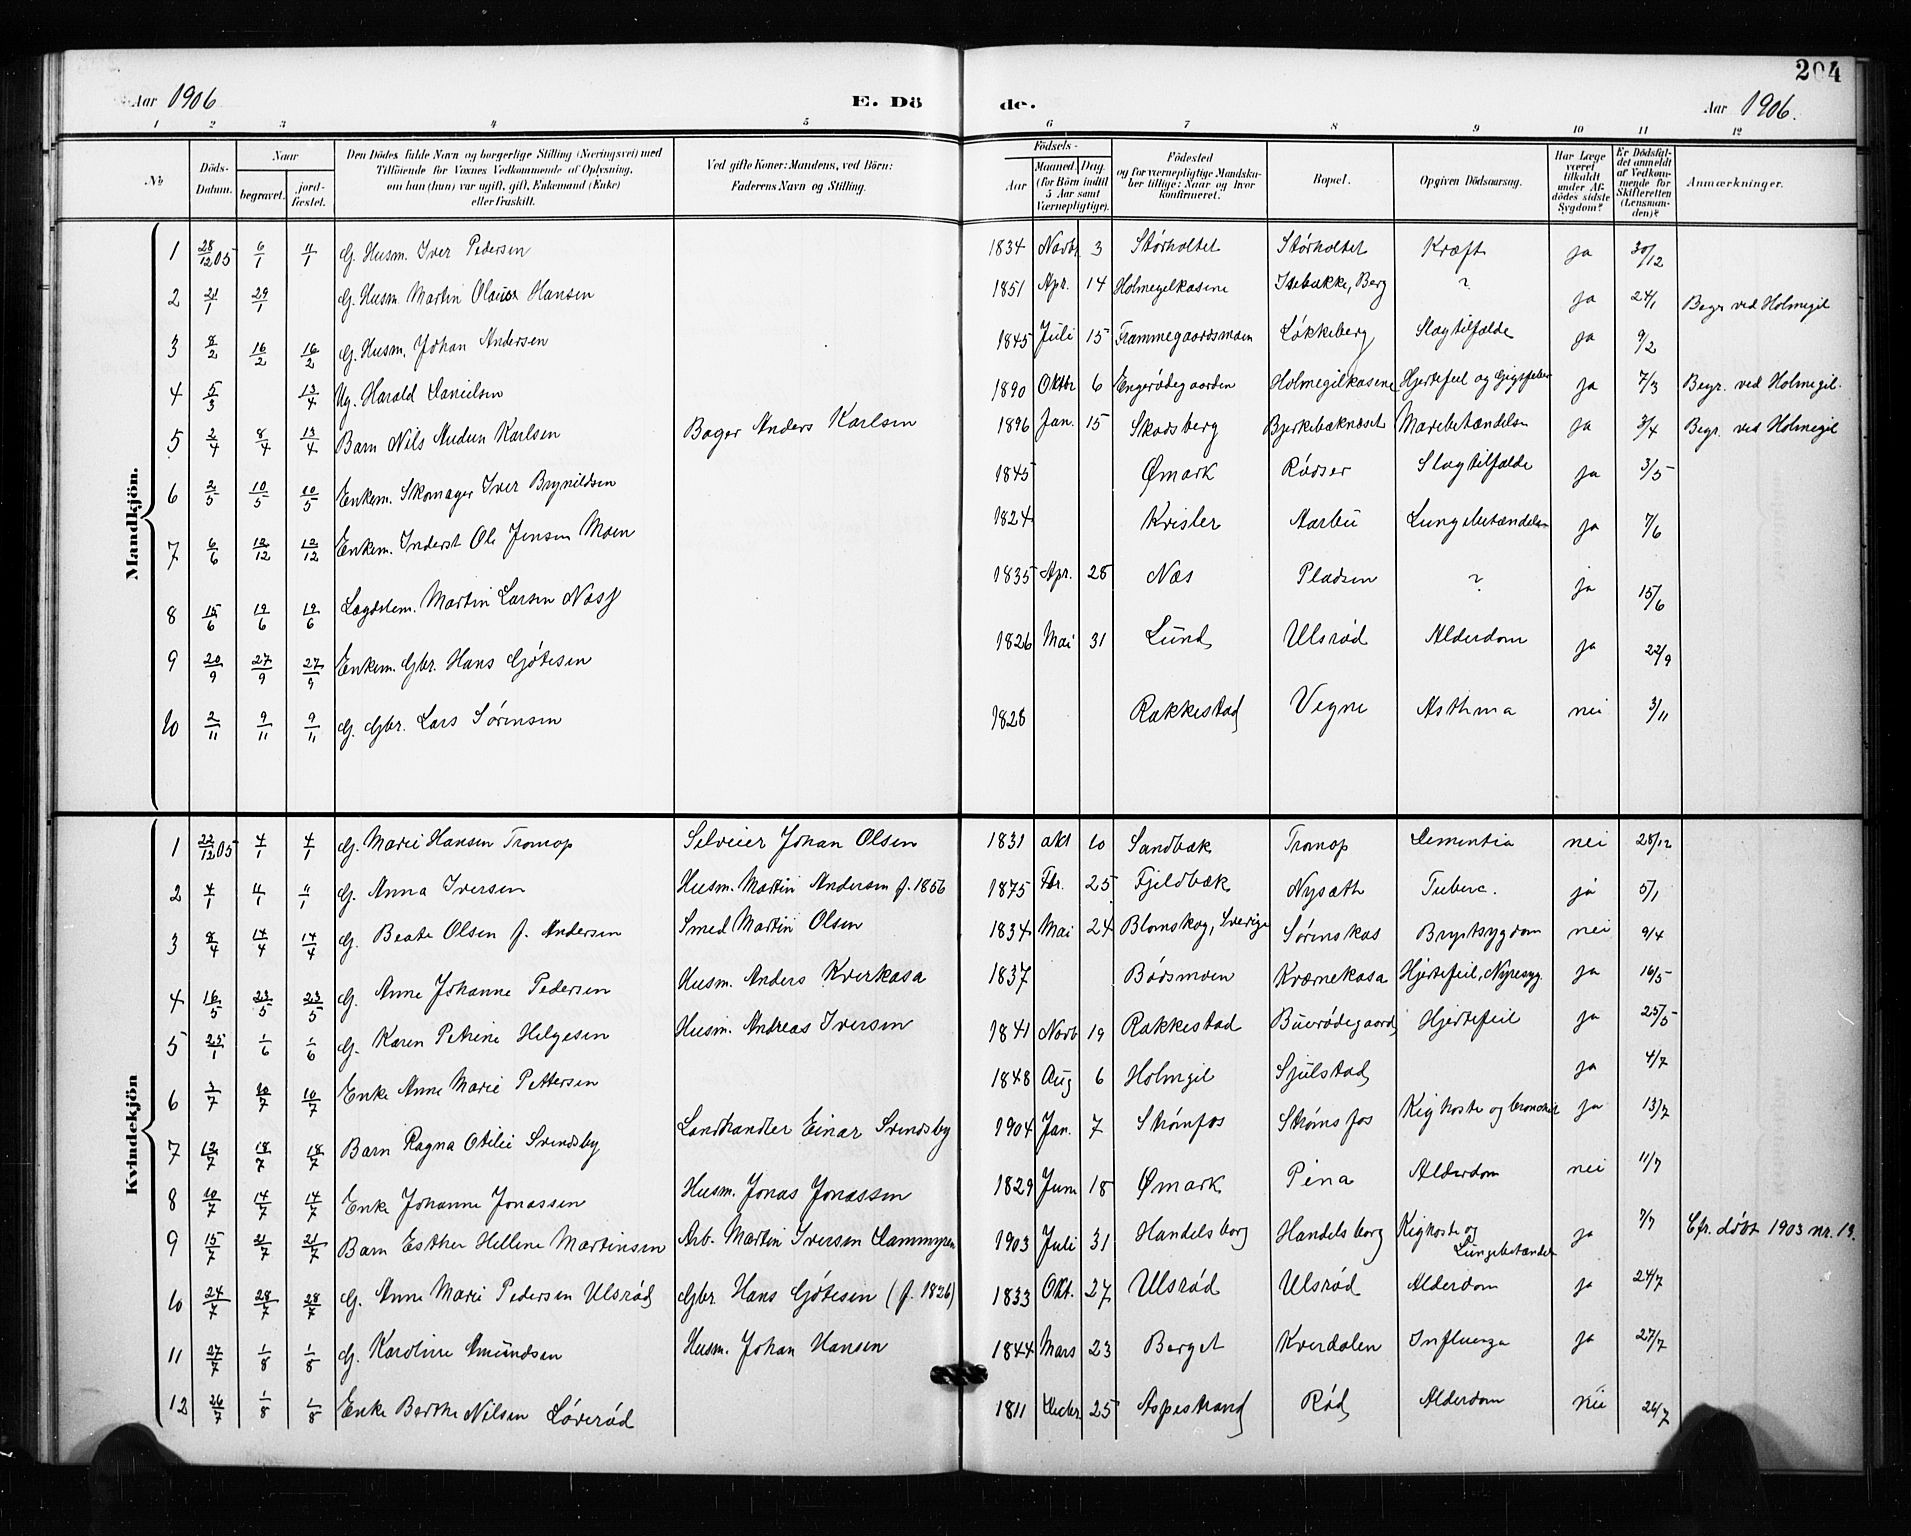 204
Aar 1906 E. Dö de. Aar 1906.
1 2 3 4 5 6 7 8 9 10 11 12
No. Döds-Datum. Naar begravet. jord-fæstet. Den Dödes fulde Navn og borgerlige Stilling (Næringsvei) med Tilföiende for Voxnes Vedkommende af Oplysning, om han (hun) var ugift, gift, Enkemand (Enke) eller fraskilt. Ved gifte Koner: Mandens, ved Börn: Faderens Navn og Stilling. Födsels- Aar Maaned Dag. (for Börn indtil 5 Aar samt Værnepligtige). Födested og for værnepligtige Mandskaber tillige: Naar og hvor konfirmeret. Bopæl. Opgiven Dödsaarsag. Har Læge været tilkaldt under Afdödes sidste Sygdom? Er Dödsfaldet anmeldt af Vedkommende for Skifteretten (Lensmanden)? Anmærkninger.
Mandkjön.
1 28/12 05 6/1 11/1 G. Husm. Iver Pedersen 1834 Novbr 3 Størholtet Størholtet Kræft ja 30/12
2 21/1 29/1 G. Husm. Martin Olaus Hansen 1851 Apr. 14 Holmegilkasene Isebakke, Berg ? ja 24/1 Begr ved Holmegil
3 8/2 16/2 16/2 G. Husm. Johan Andersen 1845 Juli 15 Frammegaardsmoen Løkkeberg Slagtilfælde ja 9/2
4 5/3 13/4 Ug. Harald Danielsen 1890 Oktbr 6 Engerødegaarden Holmegilkasene Hjertefeil og Gigtfeber ja 7/3 Begr. ved Holmegil.
5 2/4 8/4 13/4 Barn Nils Audun Karlsen Bager Anders Karlsen 1896 Jan. 15 Skodsberg Bjerkebæknæset Mavebetændelse ja 3/4 Begr. ved Holmegil
6 2/5 10/5 10/5 Enkem. Skomager Iver Brynildsen 1845 Ømark Rødser Slagtilfælde ja 3/5
7 6/6 12/12 12/12 Enkem. Inderst Ole Jensen Moen 1824 Krisler Aarbu Lungebetændelse ja 7/6
8 15/6 19/6 19/6 Lægdslem. Martin Larsen Næss 1835 Apr. 28 Næs Pladsen ? ja 15/6
9 20/9 27/9 27/9 Enkem. Gbr. Hans Gjøtesen 1826 Mai 31 Lund Ulsrød Alderdom ja 22/9
10 2/11 9/11 9/11 G. Gbr. Lars Sørensen 1828 Rakkestad Vegne Asthma nei 3/11
Kvindekjön
1 22/12 05 4/1 4/1 G. Marie Hansen Tromop Selveier Johan Olsen 1831 okt 10 Sandbæk Tromop Dementia nei 28/12
2 4/1 11/1 11/1 G. Anna Iversen Husm. Martin Andersen f. 1856 1875 Fbr. 25 Fjeldbæk Nysæth Tuberc. ja 5/1
3 8/4 14/4 14/4 G. Beate Olsen f. Andersen Smed Martin Olsen 1834 Mai 24 Blomskog, Sverige Sørenskas Brystsygdom nei 9/4
4 16/5 23/5 23/5 G. Anne Johanne Pedersen Husm. Anders Kverkasa 1837 Bøsmoen Kværnekasa Hjertefeil, Nyresyg. ja 16/5
5 25/1 1/6 1/6 G. Karen Petrine Helgesen Husm. Andreas Iversen 1841 Novb 19 Rakkestad Buerødegaard Hjertefeil ja 25/5
6 3/7 10/7 10/7 Enke Anne Marie Pettersen 1848 Aug 6 Holmgil Sjulstad ja 4/7
7 12/7 18/7 18/7 Barn Ragna Otilie Svendsby Landhandler Einar Svendsby 1904 Jan. 7 Strømfos Strømsfos Kighoste og bronchit ja 13/7
8 10/7 14/7 14/7 Enke Johanne Jonassen Husm. Jonas Jonassen 1829 Juni 18 Ømark Pina Alderdom nei 11/7
9 15/7 21/7 21/7 Barn Esther Hellene Martinsen Arb. Martin Iversen Dammyren 1903 Juli 31 Handelsborg Handelsborg Kighoste og Lungebetændelse ja 7/7 Cfr. døbt 1903 nr. 19.
10 24/7 28/7 28/7 G. Anne Marie Pedersen Ulsrød Gbr. Hans Gjøtesen (f. 1826) 1833 Okt. 27 Ulsrød Ulsrød Alderdom ja 24/7
11 27/7 1/8 1/8 G. Karoline Amundsen Husm. Johan Hansen 1844 Mars 23 Berget Kverdalen Influenza ja 27/7
12 26/7 1/8 1/8 Enke Berthe Nilsen Løverød 1811 Decbr. 25 Aspestrand Rød Alderdom nei 26/7